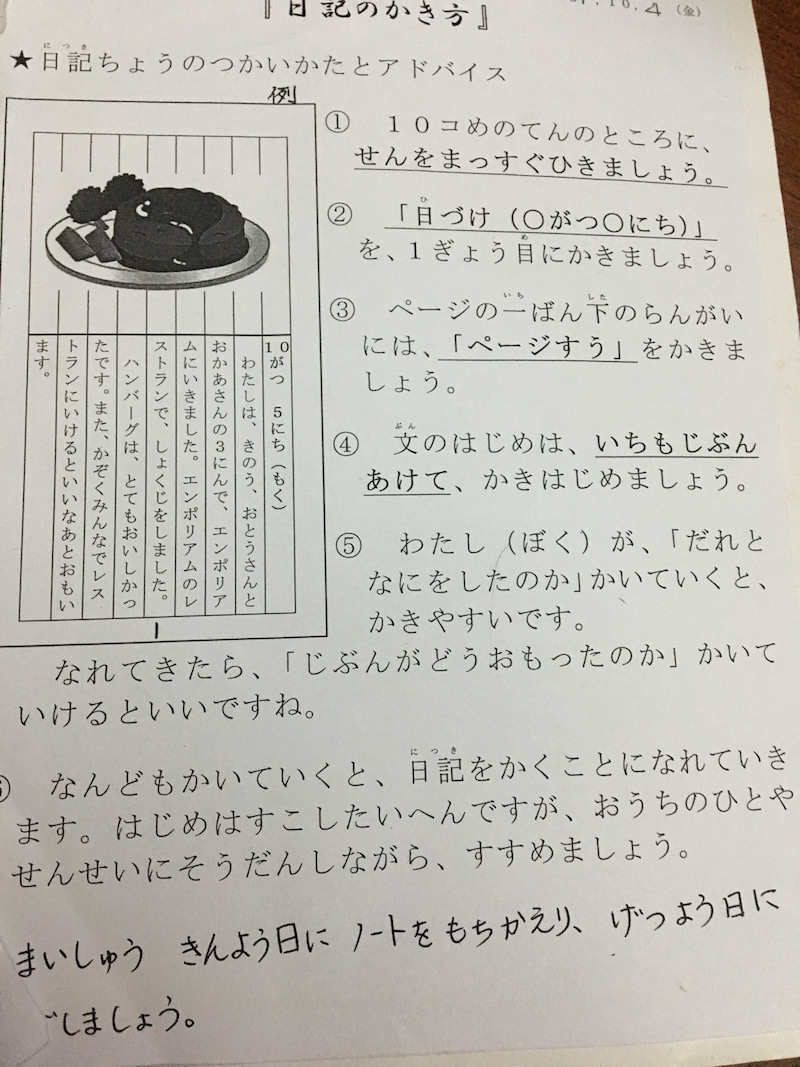 『日記のかき方』
10.4（金）
★日記ちょうのつかいかたとアドバイス
例
10がつ　5にち（もく）
　わたしは、きのう、おとうさんと
おかあさんの3にんで、エンポリア
ムにいきました。エンポリアムのレ
ストランで、しょくじをしました。
　ハンバーグは、とてもおいしかっ
たです。また、かぞくみんなでレス
トランにいけるといいなあとおもい
ます。
1
①　１０コめのてんのところに、
せんをまっすぐひきましょう。
②　「日づけ（〇がつ〇にち）」
を、１ぎょう目にかきましょう。
③　ページの一ばん下のらんがい
には、「ページすう」をかきま
しょう。
④　文のはじめは、いちもじぶん
あけて、かきはじめましょう。
⑤　わたし（ぼく）が、「だれと
なにをしたのか」かいていくと、
かきやすいです。
なれてきたら、「じぶんがどうおもったのか」かいて
いけるといいですね。
なんどもかいていくと、日記をかくことになれていき
ます。はじめはすこしたいへんですが、おうちのひとや
せんせいにそうだんしながら、すすめましょう。
まいしゅう　きんよう日に　ノートをもちかえり、げつよう日に
しましょう。